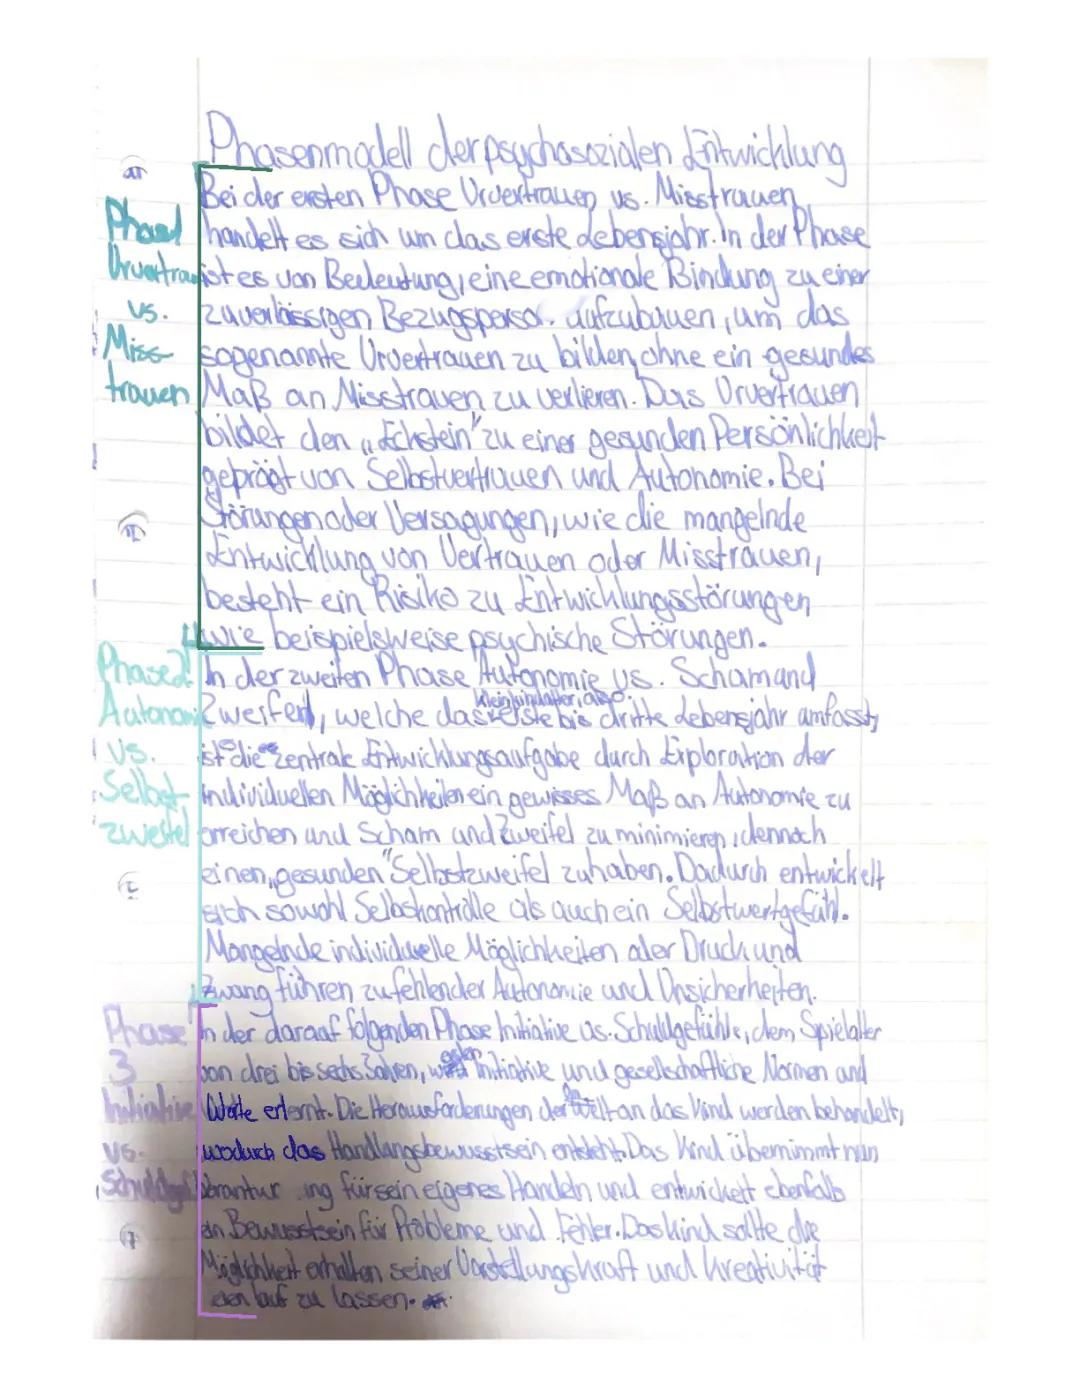 Phasenmodell der psychosozialen Entwicklung
Bei der ersten Phase Urvertrauen vs. Misstrauen
Phase 1
handelt es sich um das erste Lebensjahr. In der Phase
Urvertrauen
ist es von Bedeutung, eine emotionale Bindung zu einer
vs.
zuverlässigen Bezugsperson aufzubauen, um das
Miss-
sogenannte Urvertrauen zu bilden, ohne ein gesundes
trauen
Maß an Misstrauen zu verlieren. Das Urvertrauen
bildet den „Eckstein" zu einer gesunden Persönlichkeit
geprägt von Selbstvertrauen und Autonomie. Bei
Störungen oder Versagungen, wie die mangelnde
Entwicklung von Vertrauen oder Misstrauen,
besteht ein Risiko zu Entwicklungsstörungen
wie beispielsweise psychische Störungen.
Phase 2
In der zweiten Phase Autonomie vs. Scham und
Autonomie
Zweifel, welche das Kleinkindalter, also erste bis dritte Lebensjahr umfasst,
vs.
ist die zentrale Entwicklungsaufgabe durch Exploration der
Selbst-
individuellen Möglichkeiten ein gewisses Maß an Autonomie zu
zweifel
erreichen und Scham und Zweifel zu minimieren, dennoch
einen „gesunden" Selbstzweifel zu haben. Dadurch entwickelt
sich sowohl Selbskontrolle als auch ein Selbstwertgefühl.
Mangelnde individuelle Möglichkeiten oder Druck und
Zwang führen zu fehlender Autonomie und Unsicherheiten.
Phase
In der darauf folgenden Phase Initiative vs. Schuldgefühle, dem Spielalter
3
von drei bis sechs Jahren, Initiative und gesellschaftliche Normen und
Initiative
Werte erlernt. Die Herausforderungen der Welt an das Kind werden behandelt,
vs.
wodurch das Handlungsbewusstsein entsteht. Das Kind übernimmt nun
Schuldgef
für sein eigenes Handeln und entwickelt ebenfalls
ein Bewusstsein für Probleme und Fehler. Das Kind sollte die
Möglichkeit erhalten seiner Vorstellungskraft und Kreativität
lauf zu lassen.